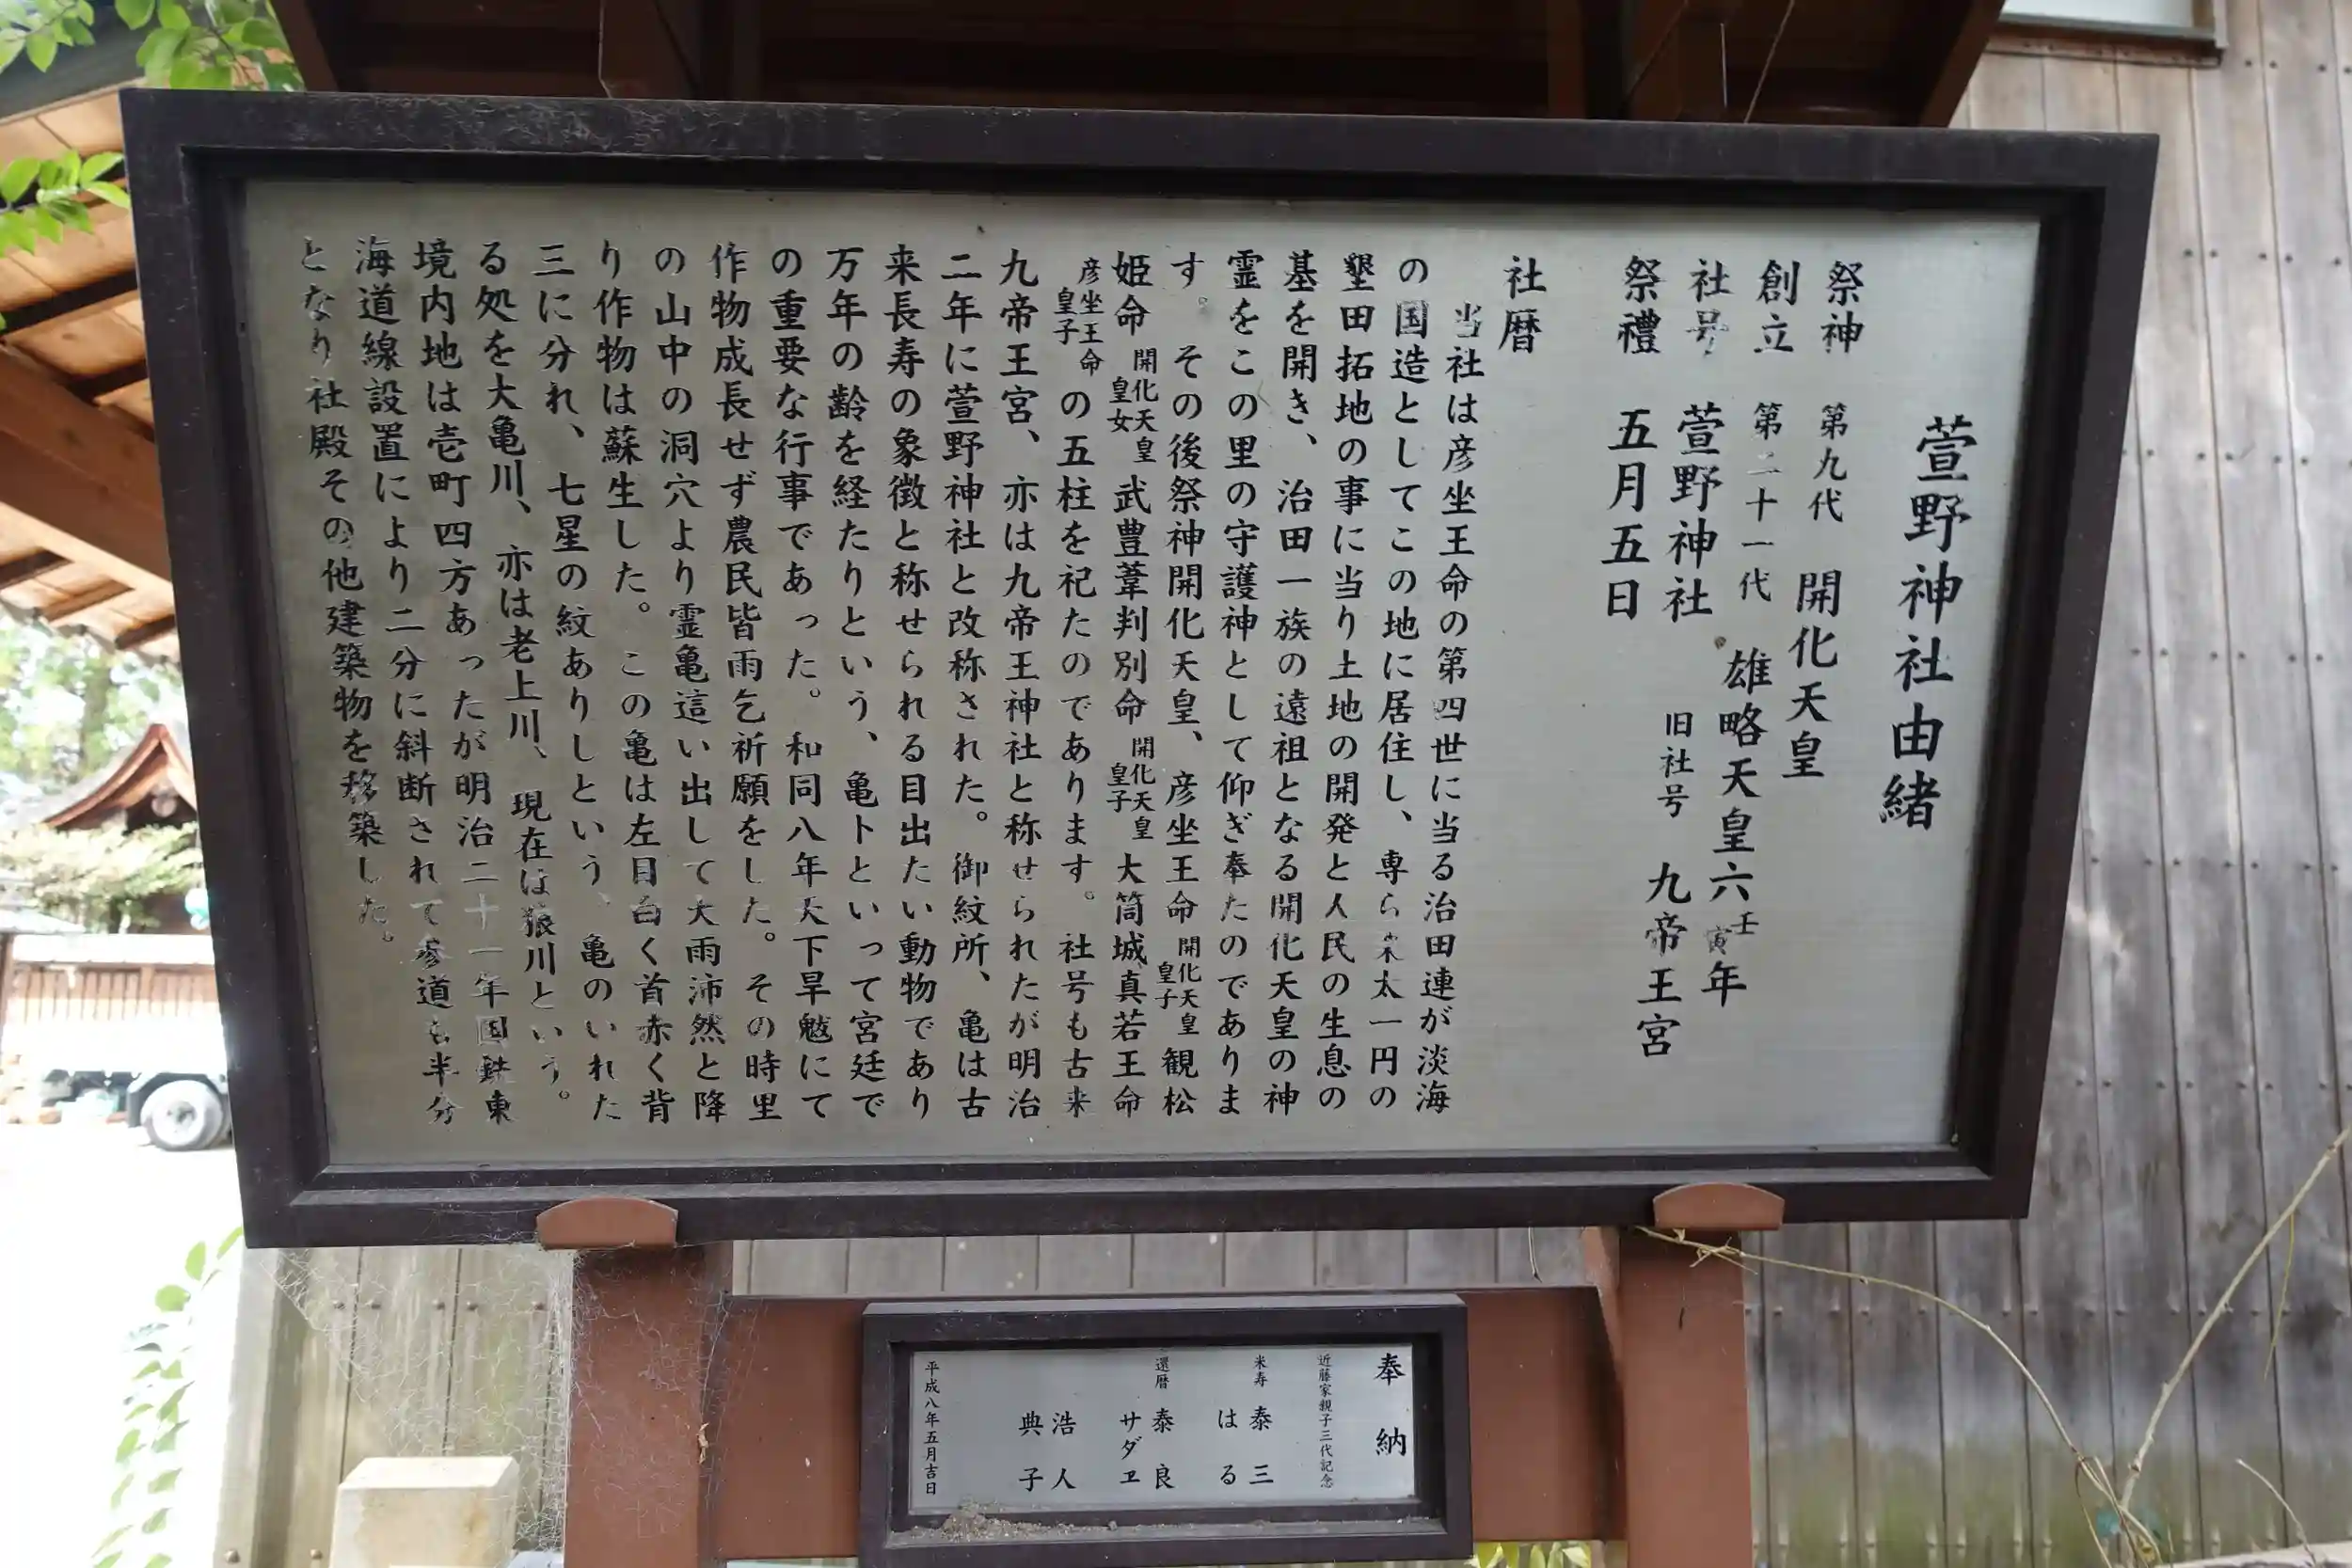 萱野神社由緒
祭神　第九代　開化天皇
創立　第二十一代　雄略天皇六壬寅年
社号　萱野神社　旧社号　九帝王宮
祭禮　五月五日
社暦
当社は彦坐王命の第四世に当る治田連が淡海
の国造としてこの地に居住し、専ら栄太一円の
墾田拓地の事に当り土地の開発と人民の生息の
基を開き、治田一族の遠祖となる開化天皇の神
霊をこの里の守護神として仰ぎ奉たのでありま
す。その後祭神開化天皇、彦坐王命開化天皇皇子観松
姫命開化天皇皇女武豊葦判別命開化天皇皇子大筒城真若王命
彦坐王命皇子の五柱を祀たのであります。社号も古来
九帝王宮、亦は九帝王神社と称せられたが明治
二年に萱野神社と改称された。御紋所、亀は古
来長寿の象徴と称せられる目出たい動物であり
万年の齢を経たりという、亀トといって宮廷で
の重要な行事であった。和同八年天下旱魃にて
作物成長せず農民皆雨乞祈願をした。その時里
の山中の洞穴より霊亀這い出して大雨沛然と降
り作物は蘇生した。この亀は左目白く首赤く背
三に分れ、七星の紋ありしという、亀のいれた
る処を大亀川、亦は老上川、現在は狼川という。
境内地は壱町四方あったが明治二十一年国鉄東
海道線設置により二分に斜断されて参道も半分
となり社殿その他建築物を移築した。
奉納
近藤家親子三代記念
米寿　泰三
はる
還暦　泰良
サダヱ
浩人
典子
平成八年五月吉日